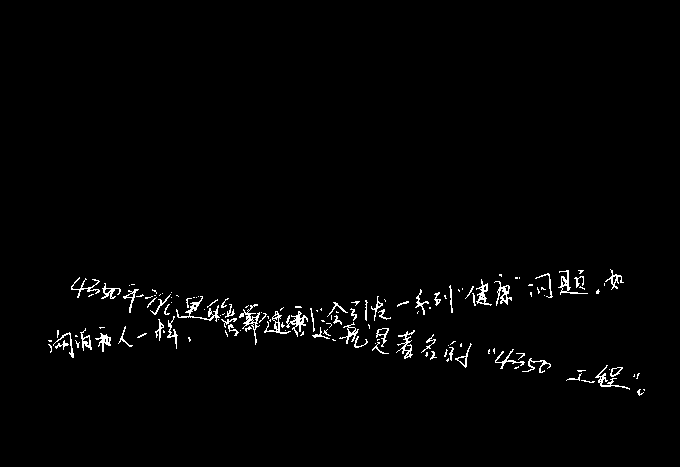 4350平方公里的营养遗剩，会引发一系列“健康”问题。如
湖泊和人一样，这就是著名的“4350工程”。